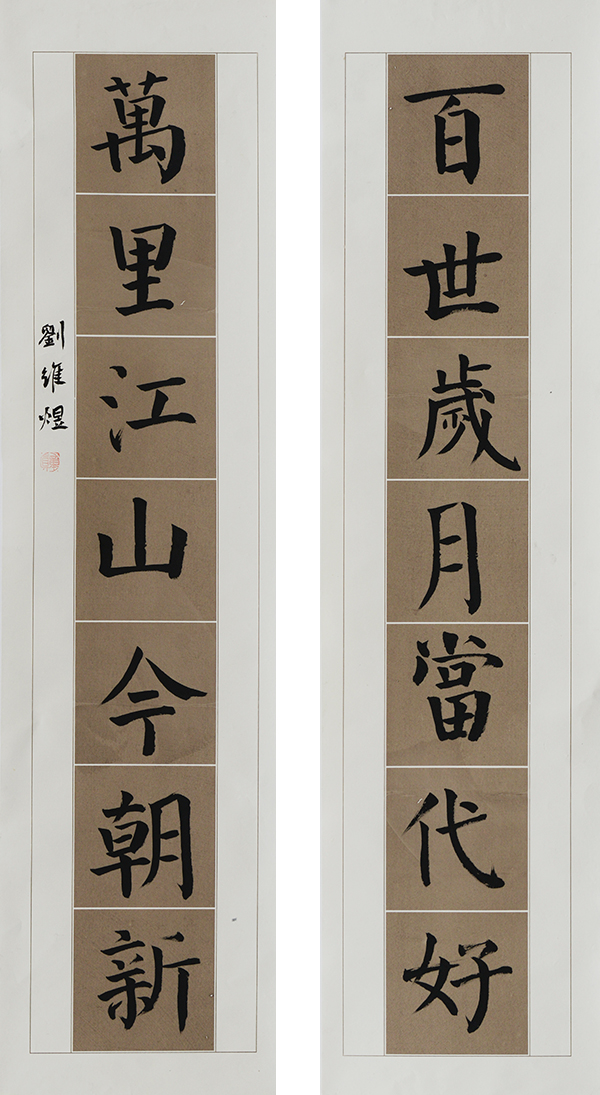 百世歲月當代好
萬里江山今朝新
劉維煜